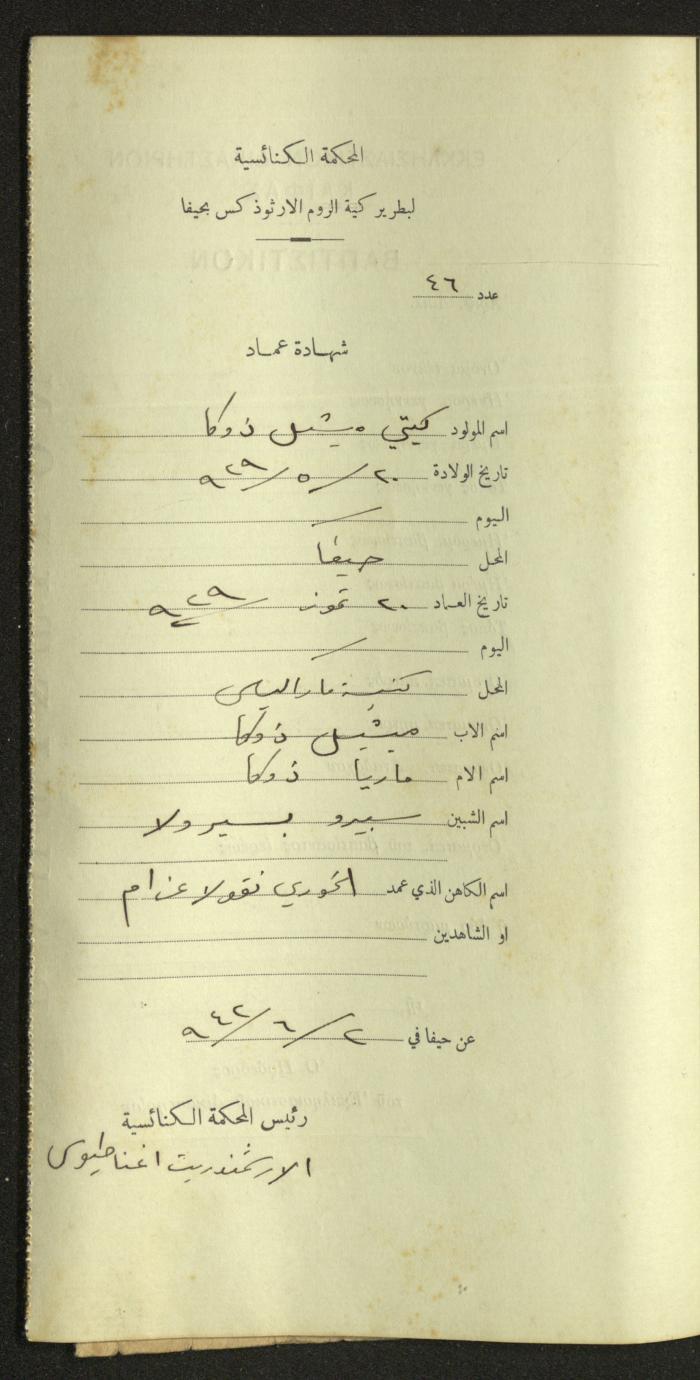 المحكمة الكنائسية
لبطريركية الروم الارثوذكس بحيفا
عدد ٤٦
شهادة عماد
اسم المولود كيتي ميشيل ذوكا
تاريخ الولادة ٢٠/٥/٩٢٩
اليوم
المحل حيفا
تاريخ العماد ٢٠ تموز ٩٢٩
اليوم
المحل كنيسة مار الياس
اسم الاب ميشيل ذوكا
اسم الام ماريا ذوكا
اسم الشبين سبيرو
اسم الكاهن الذي عمد الخوري نقولا عزام
او الشاهدين
عن حيفا في ٢/٦/٩٤٢
رئيس المحكمة الكنائسية
الارشمندريت اغناطيوس